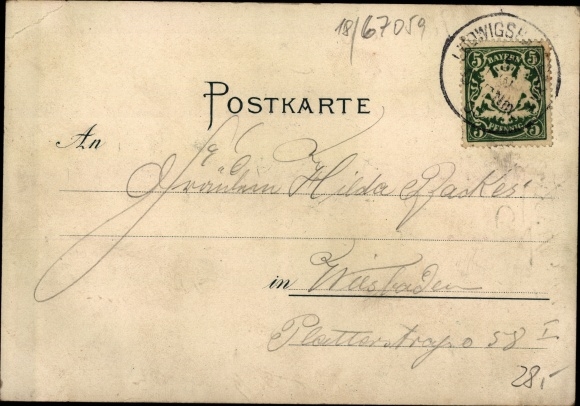 18/67059
LUDWIGSH
5 BAYERN 5
5 PFENNIG 5
POSTKARTE
An
Fräulein Hilda Backes
in Wiesbaden
Platterstraße 58 I
28,-